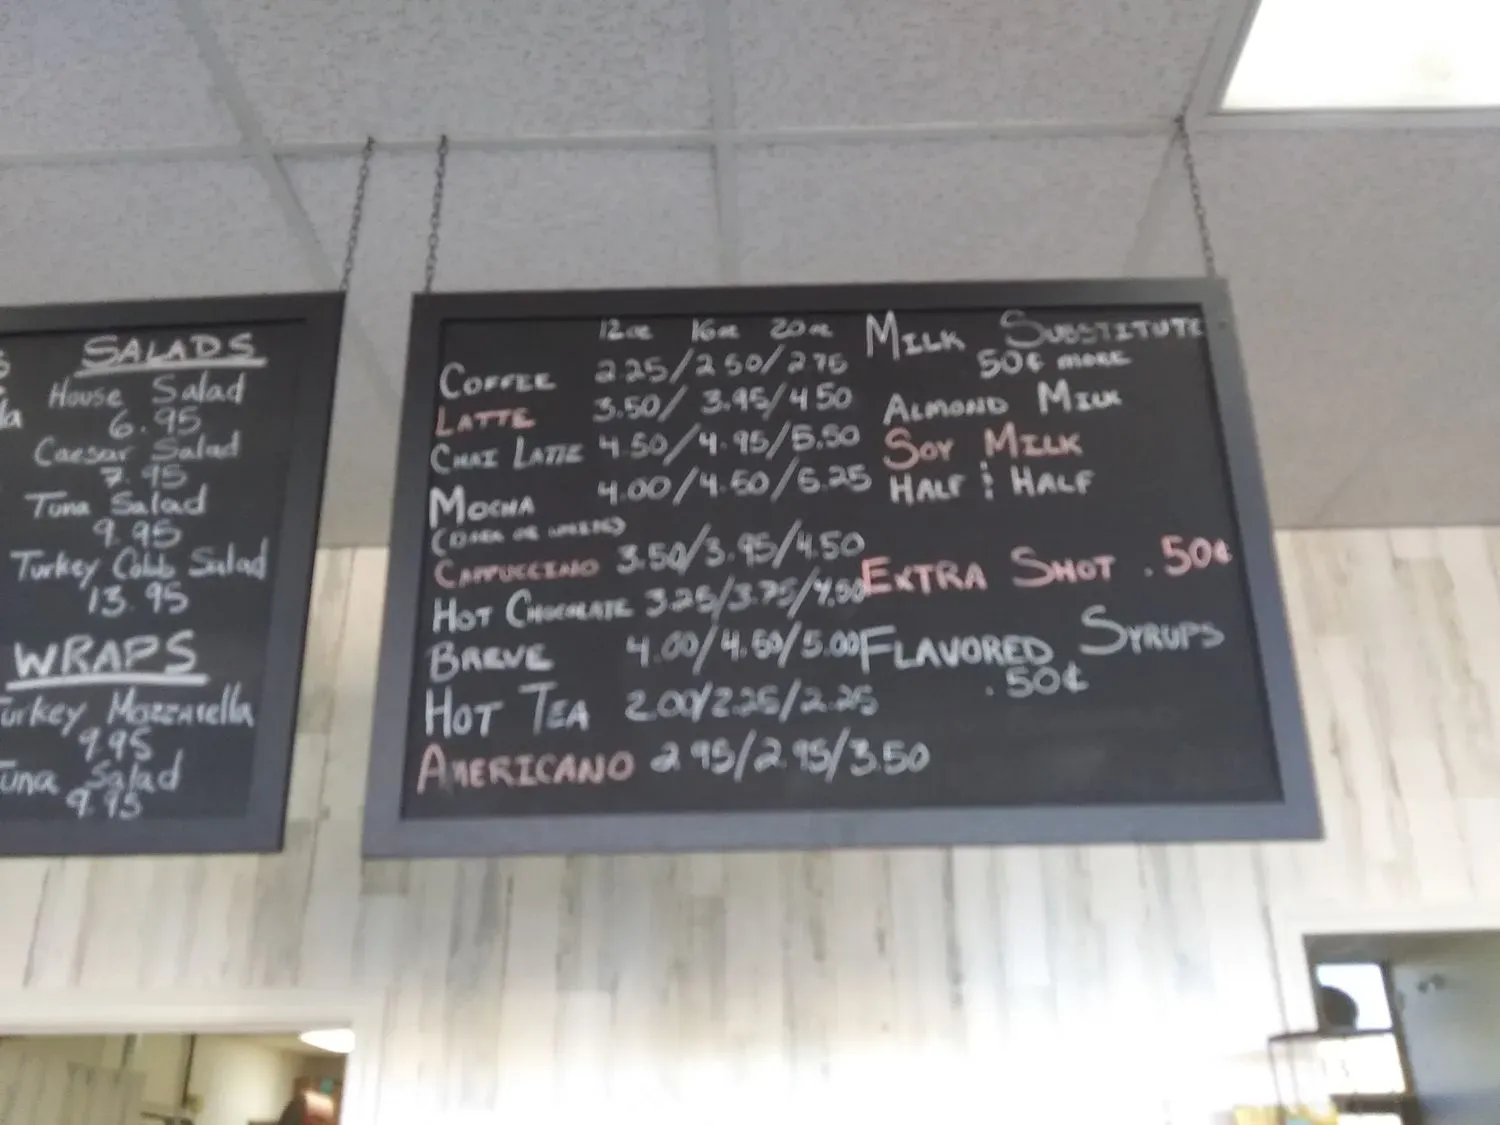 SALADS
House Salad
6.95
Caesar Salad
7.95
Tuna Salad
9.95
Turkey Cobb Salad
13.95
WRAPS
Turkey Mozzarella
9.95
Tuna Salad
9.95
12oz 16oz 20oz
COFFEE 2.25/2.50/2.75
LATTE 3.50/3.95/4.50
CHAI LATTE 4.50/4.95/5.50
MOCHA 4.00/4.50/5.25
(DARK OR WHITE)
CAPPUCCINO 3.50/3.95/4.50
HOT CHOCOLATE 3.25/3.75/4.50
BREVE 4.00/4.50/5.00
HOT TEA 2.00/2.25/2.25
AMERICANO 2.95/2.95/3.50
MILK SUBSTITUTE
50¢ MORE
ALMOND MILK
SOY MILK
HALF & HALF
EXTRA SHOT .50¢
FLAVORED SYRUPS
.50¢